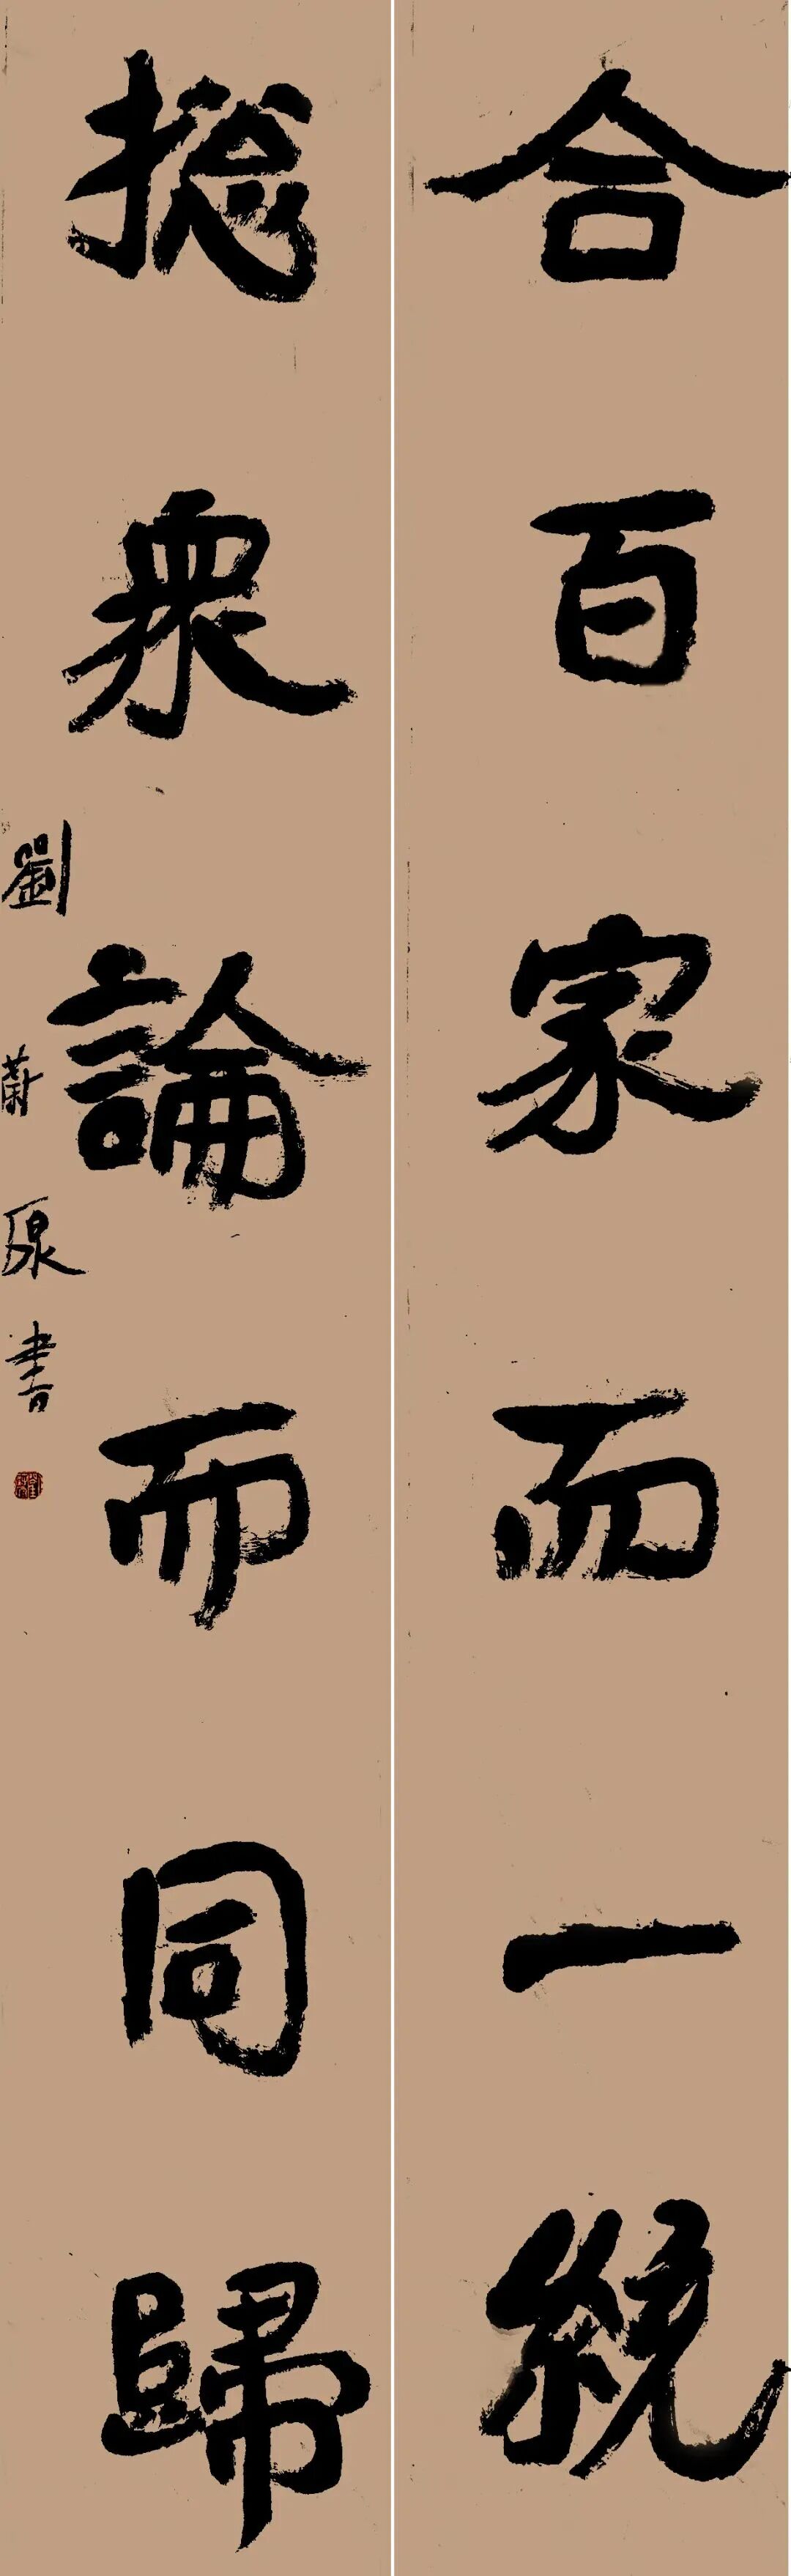 合百家而一統
揔衆論而同歸
劉蕲源書